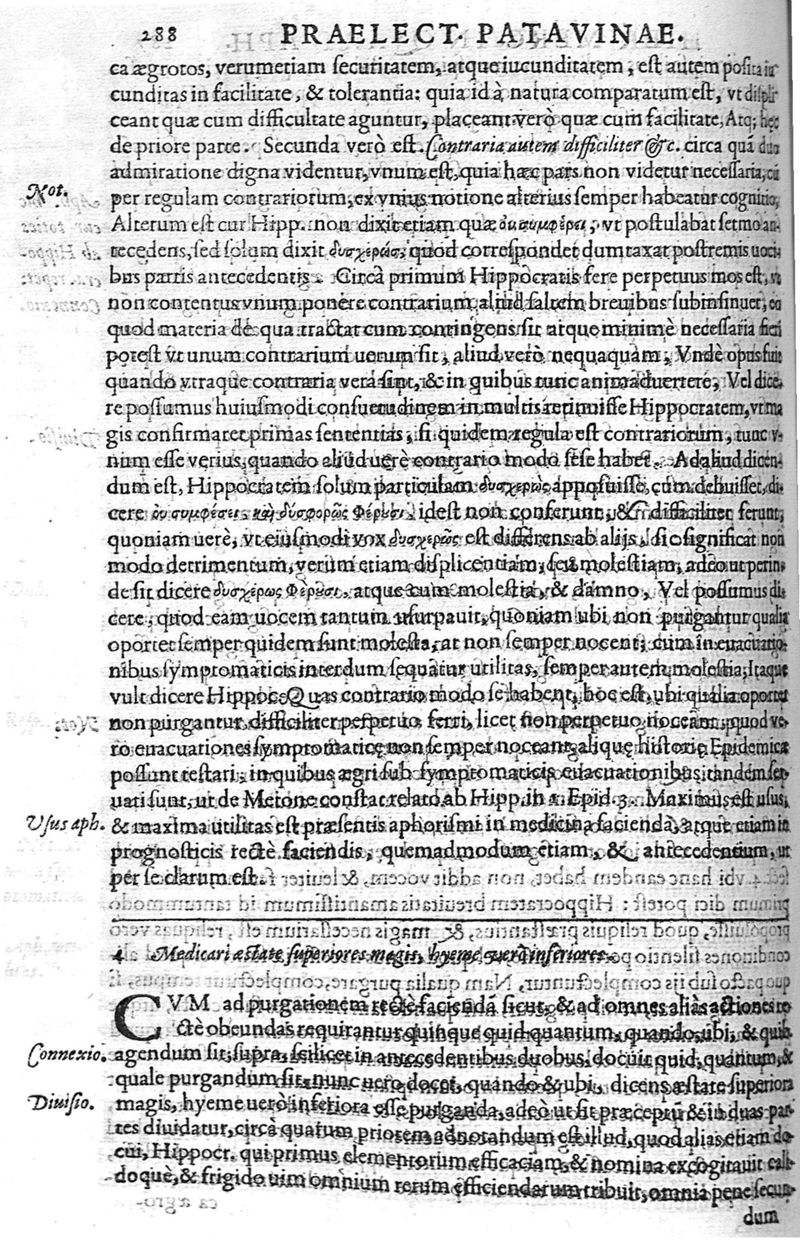 288 PRAELECT. PATAVINAE.
ca ægrotos, verumetiam securitatem, atque iucunditatem, est autem posita iu
cunditas in facilitate, & tolerantia: quia id à natura comparatum est, vt displi
ceant quæ cum difficultate aguntur, placeant verò quæ cum facilitate, Atq; hęc
de priore parte. Secunda verò est. Contraria autem difficiliter &c. circa quā duo
admiratione digna videntur, vnum est, quia hæc pars non videtur necessaria, cū
Not.
per regulam contrariorum, ex vnius notione alterius semper habeatur cognitio,
Alterum est cur Hipp. non dixit etiam quæ ὀυ συμφέρει, vt postulabat sermo an-
tecedens, sed solum dixit δυσχερῶς, quod correspondet dumtaxat postremis uoci
bus partis antecedentis. Circa primum Hippocratis fere perpetuus mos est, vt
non contentus vnum ponere contrarium, aliud saltem breuibus subinsinuet, eo
quod materia de qua tractat cum contingens sit atque minimè necessaria fieri
potest vt unum contrarium uerum sit, aliud verò nequaquam, Vndè opus fuit
quando vtraque contraria vera sint, & in quibus tunc animaduertere, Vel dice-
re possumus huiusmodi consuetudinem in multis retinuisse Hippocratem, vt ma
gis confirmaret primas sententias, si quidem regula est contrariorum, tunc v-
num esse verius, quando aliud uerè contrario modo sese habet. Ad aliud dicen-
dum est, Hippocratem solum particulam δυσχερῶς apposuisse, cum debuisset, di-
cere ὀυ συμφέρει, καὶ δυσφορῶς φέρουσι, idest non conferunt, & difficiliter ferunt,
quoniam uerè, vt eiusmodi vox δυσχερῶς est differens ab alijs, sic significat non
modo detrimentum, verum etiam displicentiam, seu molestiam, adeo ut perin-
de sit dicere δυσχερως φέρουσι, atque cum molestia, & damno, Vel possumus di-
cere, quod eam uocem tantum usurpauit, quoniam ubi non purgantur qualia
oportet semper quidem sunt molesta, at non semper nocent, cum in euacuatio-
nibus symptomaticis interdum sequatur utilitas, semper autem molestia, Itaque
vult dicere Hippoc. Quas contrario modo se habent, hoc est, ubi qualia oportet
non purgantur, difficiliter perpetuo ferri, licet non perpetuo noceant, quod ve-
rò euacuationes symptomaticę non semper noceant, alique historię Epidemicæ
possunt testari, in quibus ægri sub symptomaticis euacuationibus tandem ser-
uati sunt, ut de Metone constat relato ab Hipp. in 1. Epid. 3. Maximus est usus,
Vsus aph.
& maxima utilitas est præsentis aphorismi in medicina facienda, atque etiam in
prognosticis rectè faciendis, quemadmodum etiam, & antecedentium, ut
per se clarum est.
4 Medicari æstate superiores magis, hyeme verò inferiores.
CVM ad purgationem rectè faciendā sicut, & ad omnes alias actiones re-
ctè obeundas requirantur quinque quid quantum, quando, ubi, & quib.
Connexio.
agendum sit, supra, scilicet in antecedentibus duobus, docuit quid, quantum, &
quale purgandum sit, nunc uero docet, quando & ubi, dicens æstate superiora
Diuisio.
magis, hyeme uerò inferiora esse purganda, adeò ut sit præceptū & in duas par-
tes diuidatur, circâ quatum priorem adnotandum est illud, quod alias etiam do-
cui, Hippocr. qui primus elementorum efficaciam, & nomina excogitauit cali-
doquè, & frigido uim omnium rerum efficiendarum tribuit, omnia pene secun-
dum